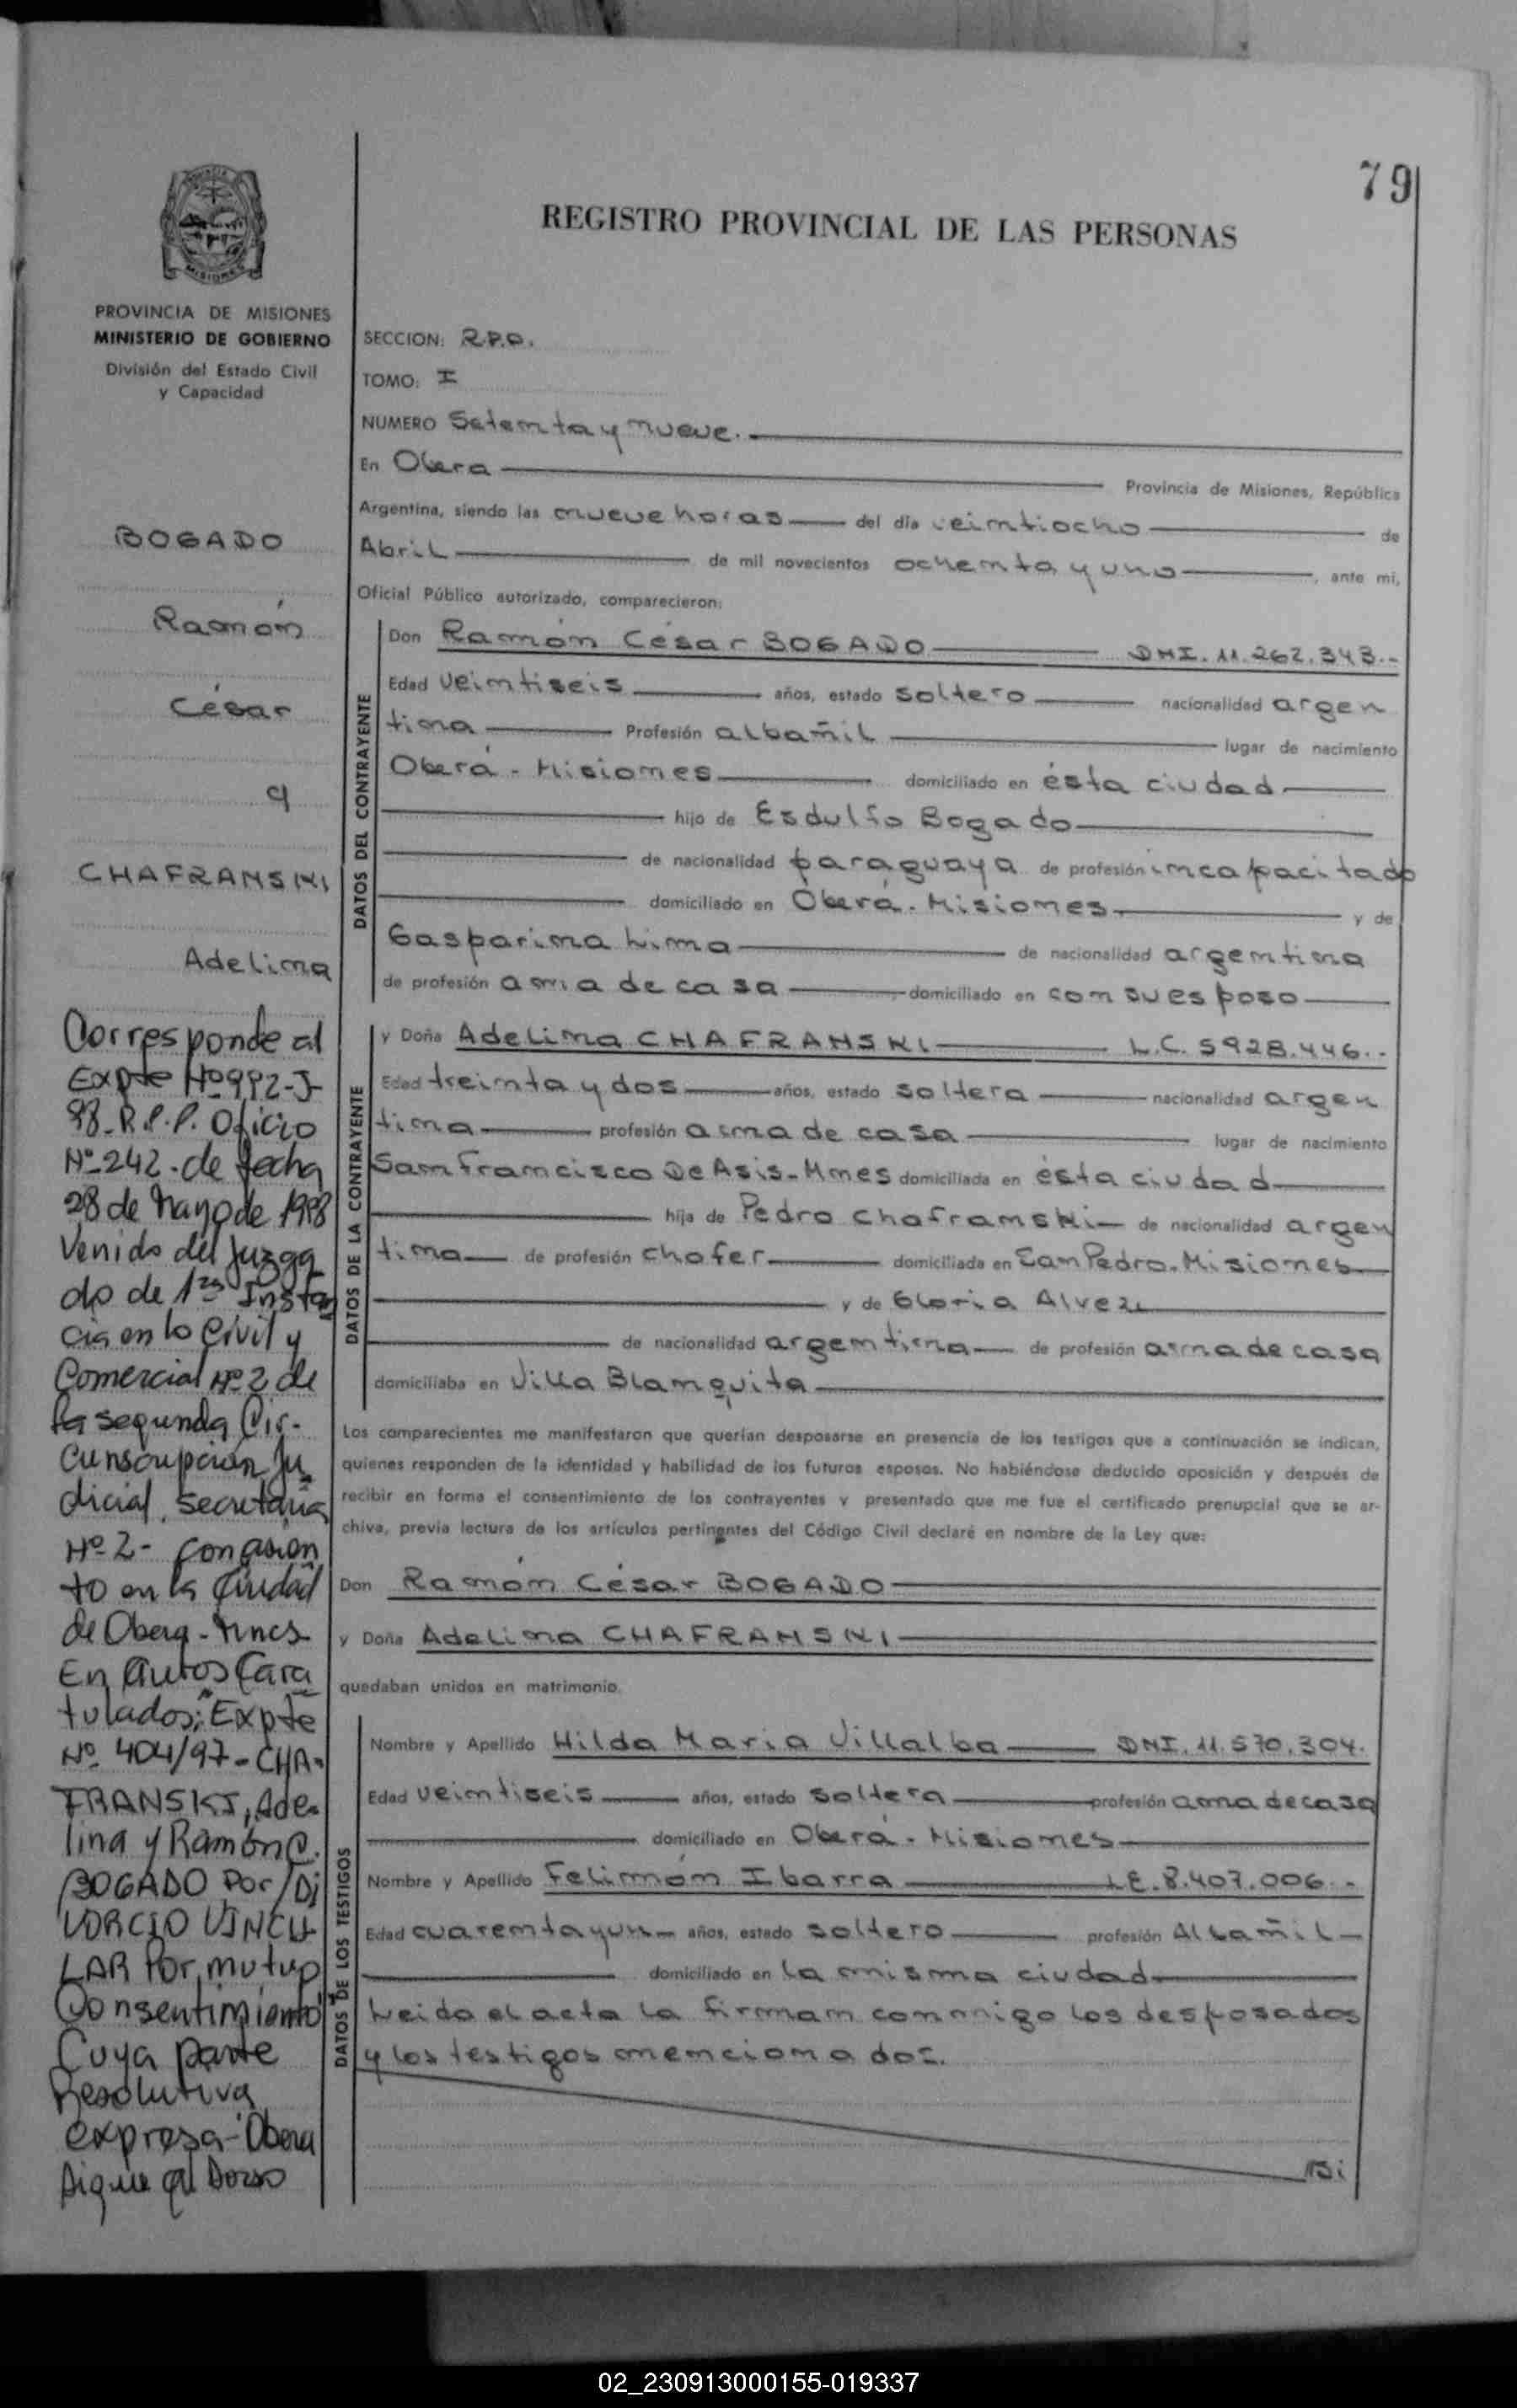 79
REGISTRO PROVINCIAL DE LAS PERSONAS
MISIONES
PROVINCIA DE MISIONES
MINISTERIO DE GOBIERNO
División del Estado Civil
y Capacidad
BOGADO
Ramón
César
y
CHAFRANSKI
Adelina
Corresponde al
Expte Nº 992-J-
98-R.P.P. Oficio
Nº 242-de fecha
28 de Mayo de 1998
Venido del Juzga
do de 1ra Instan
cia en lo Civil y
Comercial Nº 2 de
la segunda Cir-
cunscripción Ju
dicial, secretaria
Nº 2- con asien
to en la Ciudad
de Obera-Mnes
En Autos Cara
tulados: "Expte
Nº 404/97-CHA-
FRANSKI, Ade-
lina y Ramón C.
BOGADO Por/Di
VORCIO VINCU
LAR Por mutuo
Consentimiento"
Cuya parte
Resolutiva
expresa-"Obera
Sigue al Dorso
SECCION: R.P.O.
TOMO: I
NUMERO Setenta y nueve.
En Obera Provincia de Misiones, República
Argentina, siendo las nueve horas del día veintiocho de
Abril de mil novecientos ochenta y uno, ante mi,
Oficial Público autorizado, comparecieron:
DATOS DEL CONTRAYENTE
Don Ramón César BOGADO DNI. 11.262.343.-
Edad veintiseis años, estado soltero nacionalidad argen
tina Profesión albañil lugar de nacimiento
Oberá - Misiones domiciliado en ésta ciudad
hijo de Esdulfo Bogado
de nacionalidad paraguaya de profesión incapacitado
domiciliado en Oberá - Misiones y de
Gasparina Lima de nacionalidad argentina
de profesión ama de casa domiciliado en con su esposo
DATOS DE LA CONTRAYENTE
y Doña Adelina CHAFRANSKI L.C. 5928.446.-
Edad treinta y dos años, estado soltera nacionalidad argen
tina profesión ama de casa lugar de nacimiento
San Francisco De Asis-Mnes domiciliada en ésta ciudad
hija de Pedro Chafranski de nacionalidad argen
tina de profesión chofer domiciliada en San Pedro-Misiones
y de Gloria Alvez
de nacionalidad argentina de profesión ama de casa
domiciliaba en Villa Blanquita
Los comparecientes me manifestaron que querían desposarse en presencia de los testigos que a continuación se indican,
quienes responden de la identidad y habilidad de los futuros esposos. No habiéndose deducido oposición y después de
recibir en forma el consentimiento de los contrayentes y presentado que me fue el certificado prenupcial que se ar-
chiva, previa lectura de los artículos pertinentes del Código Civil declaré en nombre de la Ley que:
Don Ramón César BOGADO
y Doña Adelina CHAFRANSKI
quedaban unidos en matrimonio.
DATOS DE LOS TESTIGOS
Nombre y Apellido Hilda Maria Villalba DNI. 11.570.304.
Edad veintiseis años, estado soltera profesión ama de casa
domiciliado en Oberá - Misiones
Nombre y Apellido Felimón Ibarra L.E. 8.407.006.-
Edad cuarenta y un años, estado soltero profesión Albañil
domiciliado en la misma ciudad
Leida el acta la firman conmigo los desposados
y los testigos mencionados.
02_230913000155-019337